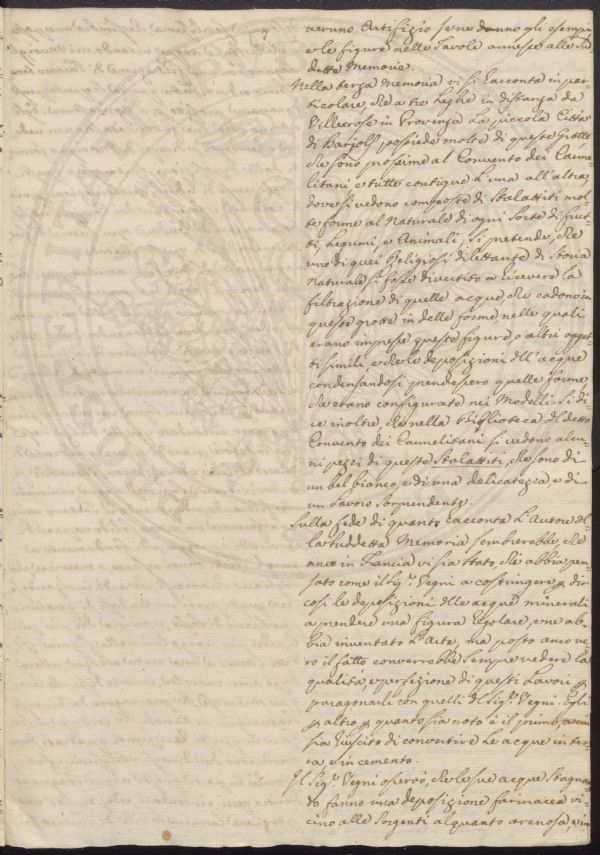 veruno Artifizio se ne danno gli esempi
e le figure nelle Tavole annesse alle sud-
dette Memorie.
Nella terza Memoria vi si racconta in par-
ticolare, che a tre leghe in distanza da
Villecrose in Provenza La piccola Città
di Barjols possiede molte di queste Grotte,
che sono prossime al Convento dei Carme-
litani, e tutte contigue l'una all'altra,
dove si vedono composte di Stalattiti mol-
te forme al Naturale di ogni sorte di frut-
ti, Legumi, e Animali; Si pretende, che
uno di quei Religiosi dilettante di Storia
Naturale si fosse divertito a ricevere la
filtrazione di quelle acque, che cadono in
queste grotte in delle forme nelle quali
erano impresse queste figure, o altri ogget-
ti simili, e che le deposizioni dell'acque
condensandosi prendessero quelle forme,
che erano configurate nei Modelli. Si di-
ce inoltre, che nella Biblioteca del detto
Convento dei Carmelitani si vedono alcu-
ni pezzi di queste Stalattiti, che sono di
un bel bianco, e di una delicatezza, e di
un Lavoro sorprendente.
Sulla fede di quanto racconta l'Autore del-
la suddetta Memoria sembrerebbe, che
anco in Francia vi sia stato, chi abbia pen-
sato come il Sigr. Vegni a costringere p dir
così le deposizioni delle acque minerali
a prendere una figura regolare, e ne ab-
bia inventato l'Arte; ma posto anco ve-
ro il fatto converrebbe sempre vedere la
qualità, e perfezione di questi Lavori p
paragonarli con quelli del Sigr. Vegni. Egli
p altro p quanto sia noto è il primo, a cui
sia riuscito di convertire le acque in ter-
ra, e in cemento.
Il Sigr. Vegni osservò, che le sue acque stagnan-
do fanno una deposizione farinacea vi-
cino alle Sorgenti alquanto arenosa, e in